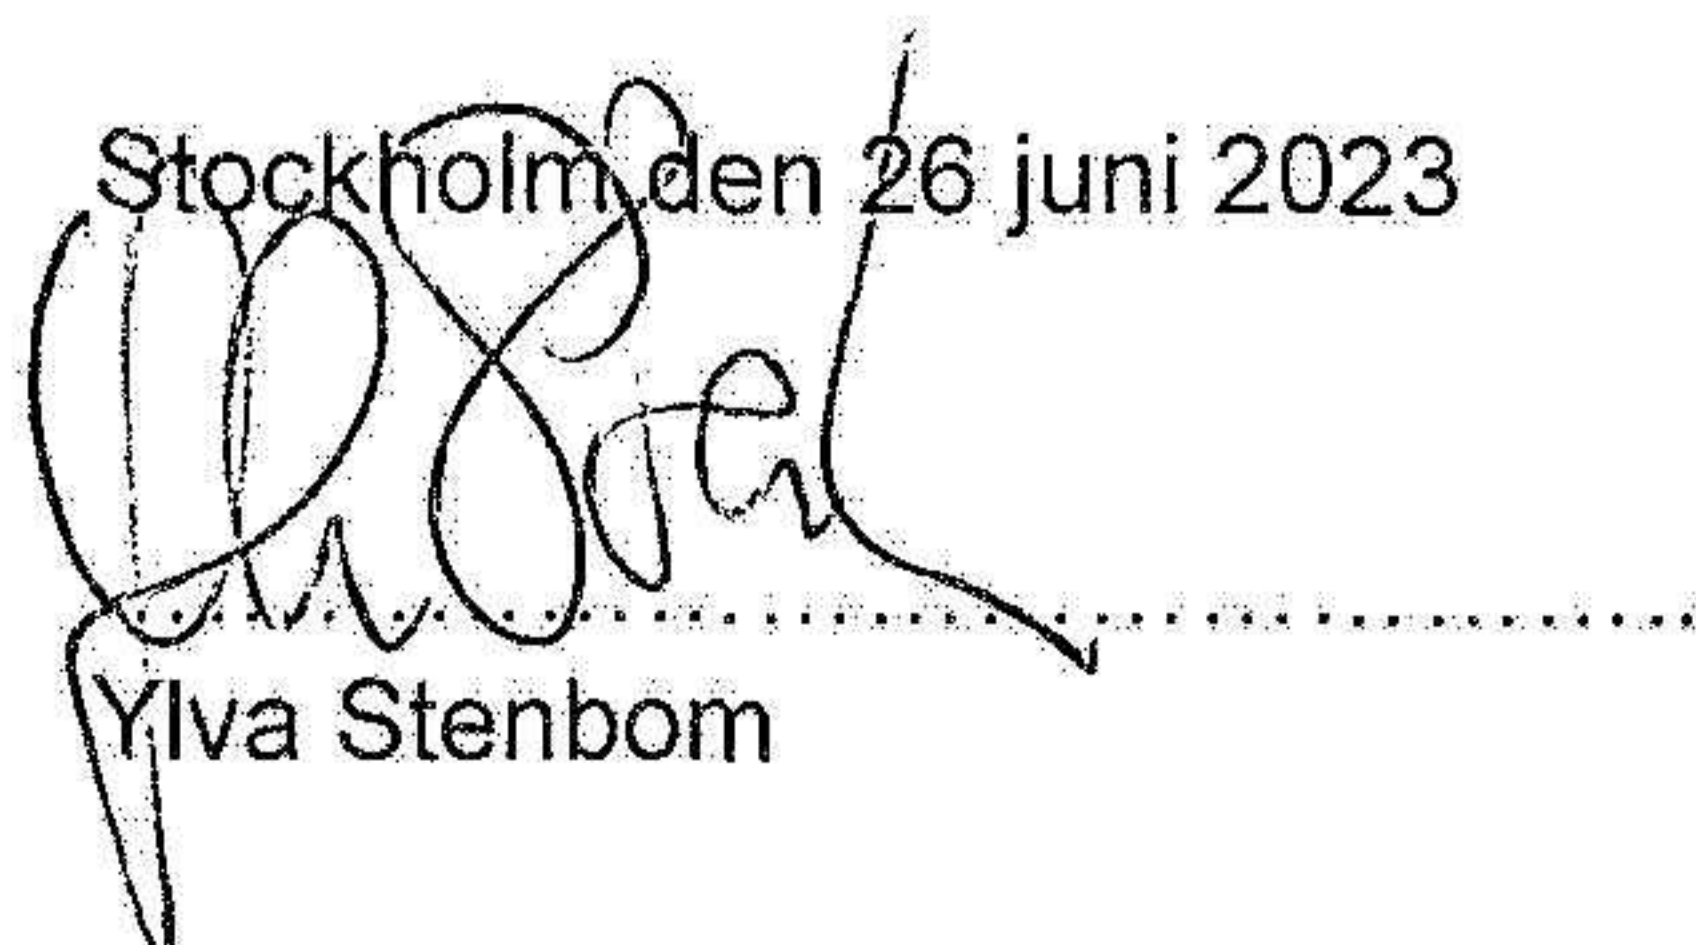 Stockholm den 26 juni 2023
Ylva Stenbom